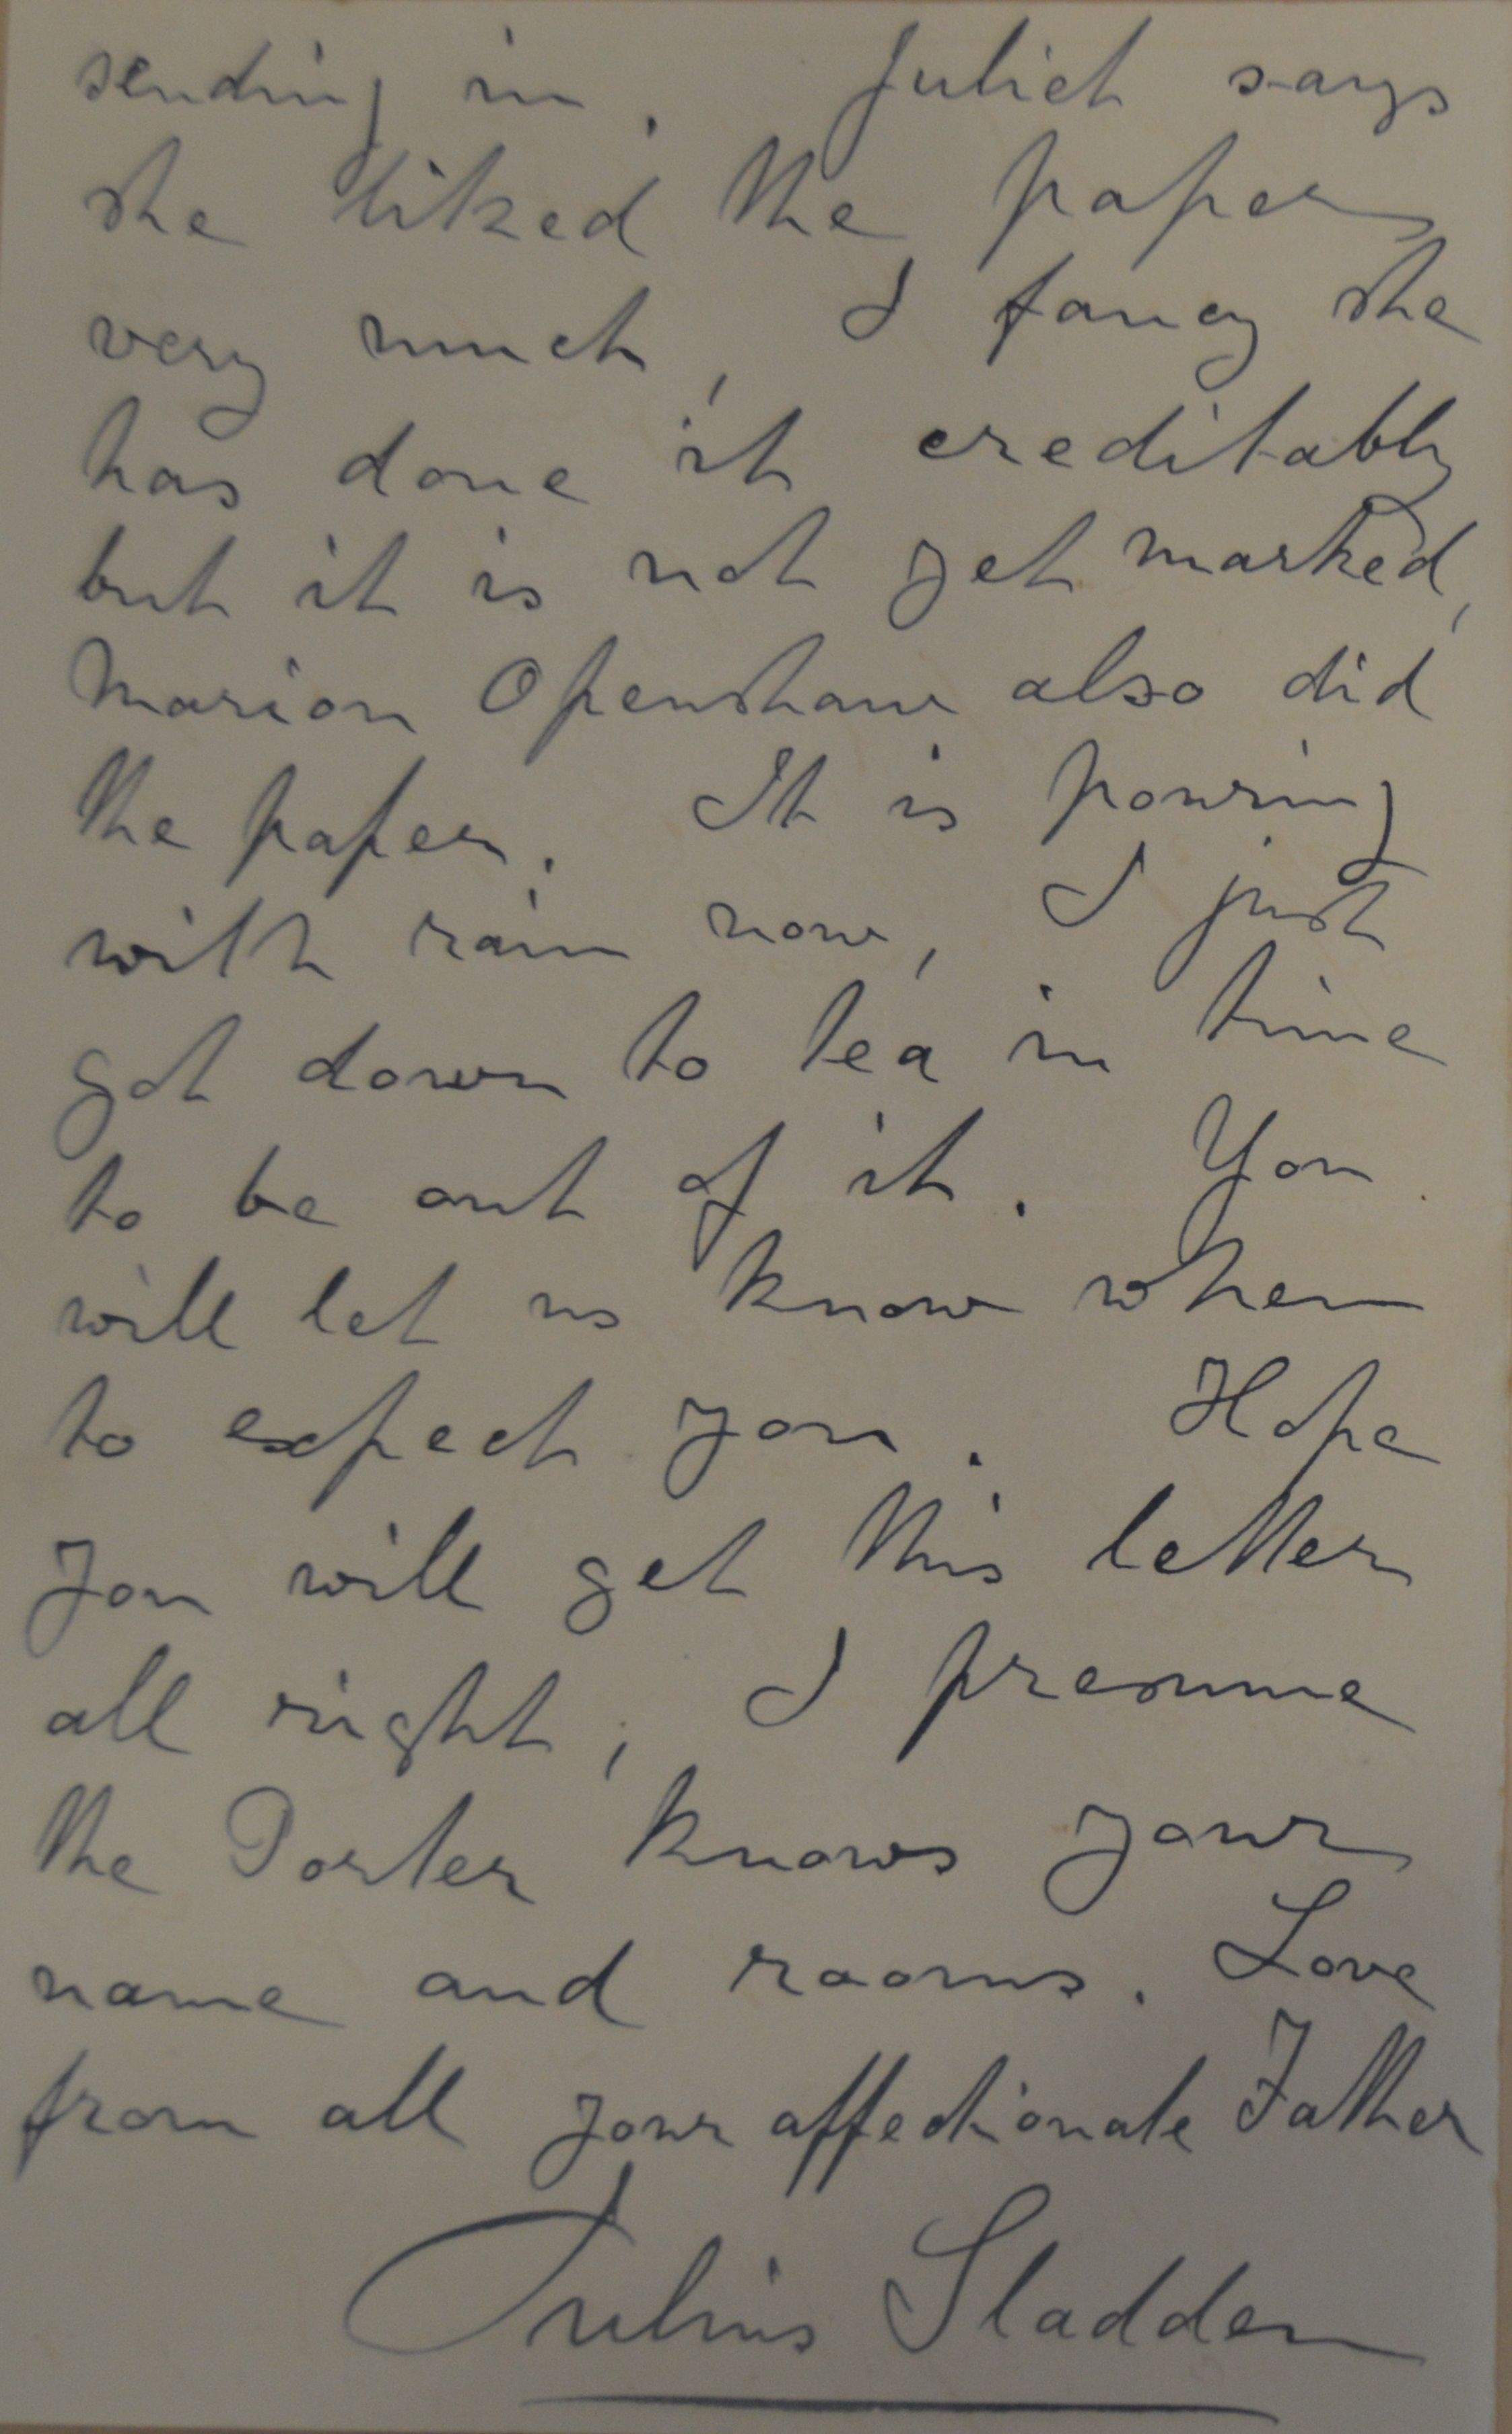 sending in. Juliet says
she liked the paper
very much, I fancy she
has done it creditably
but it is not yet marked,
Marion Openshaw also did
the paper. It is pouring
with rain now, I just
got down to tea in time
to be out of it. You
will let us know when
to expect you. Hope
you will get this letter
all right, I presume
the Porter knows your
name and rooms. Love
from all your affectionate Father
Julius Sladden